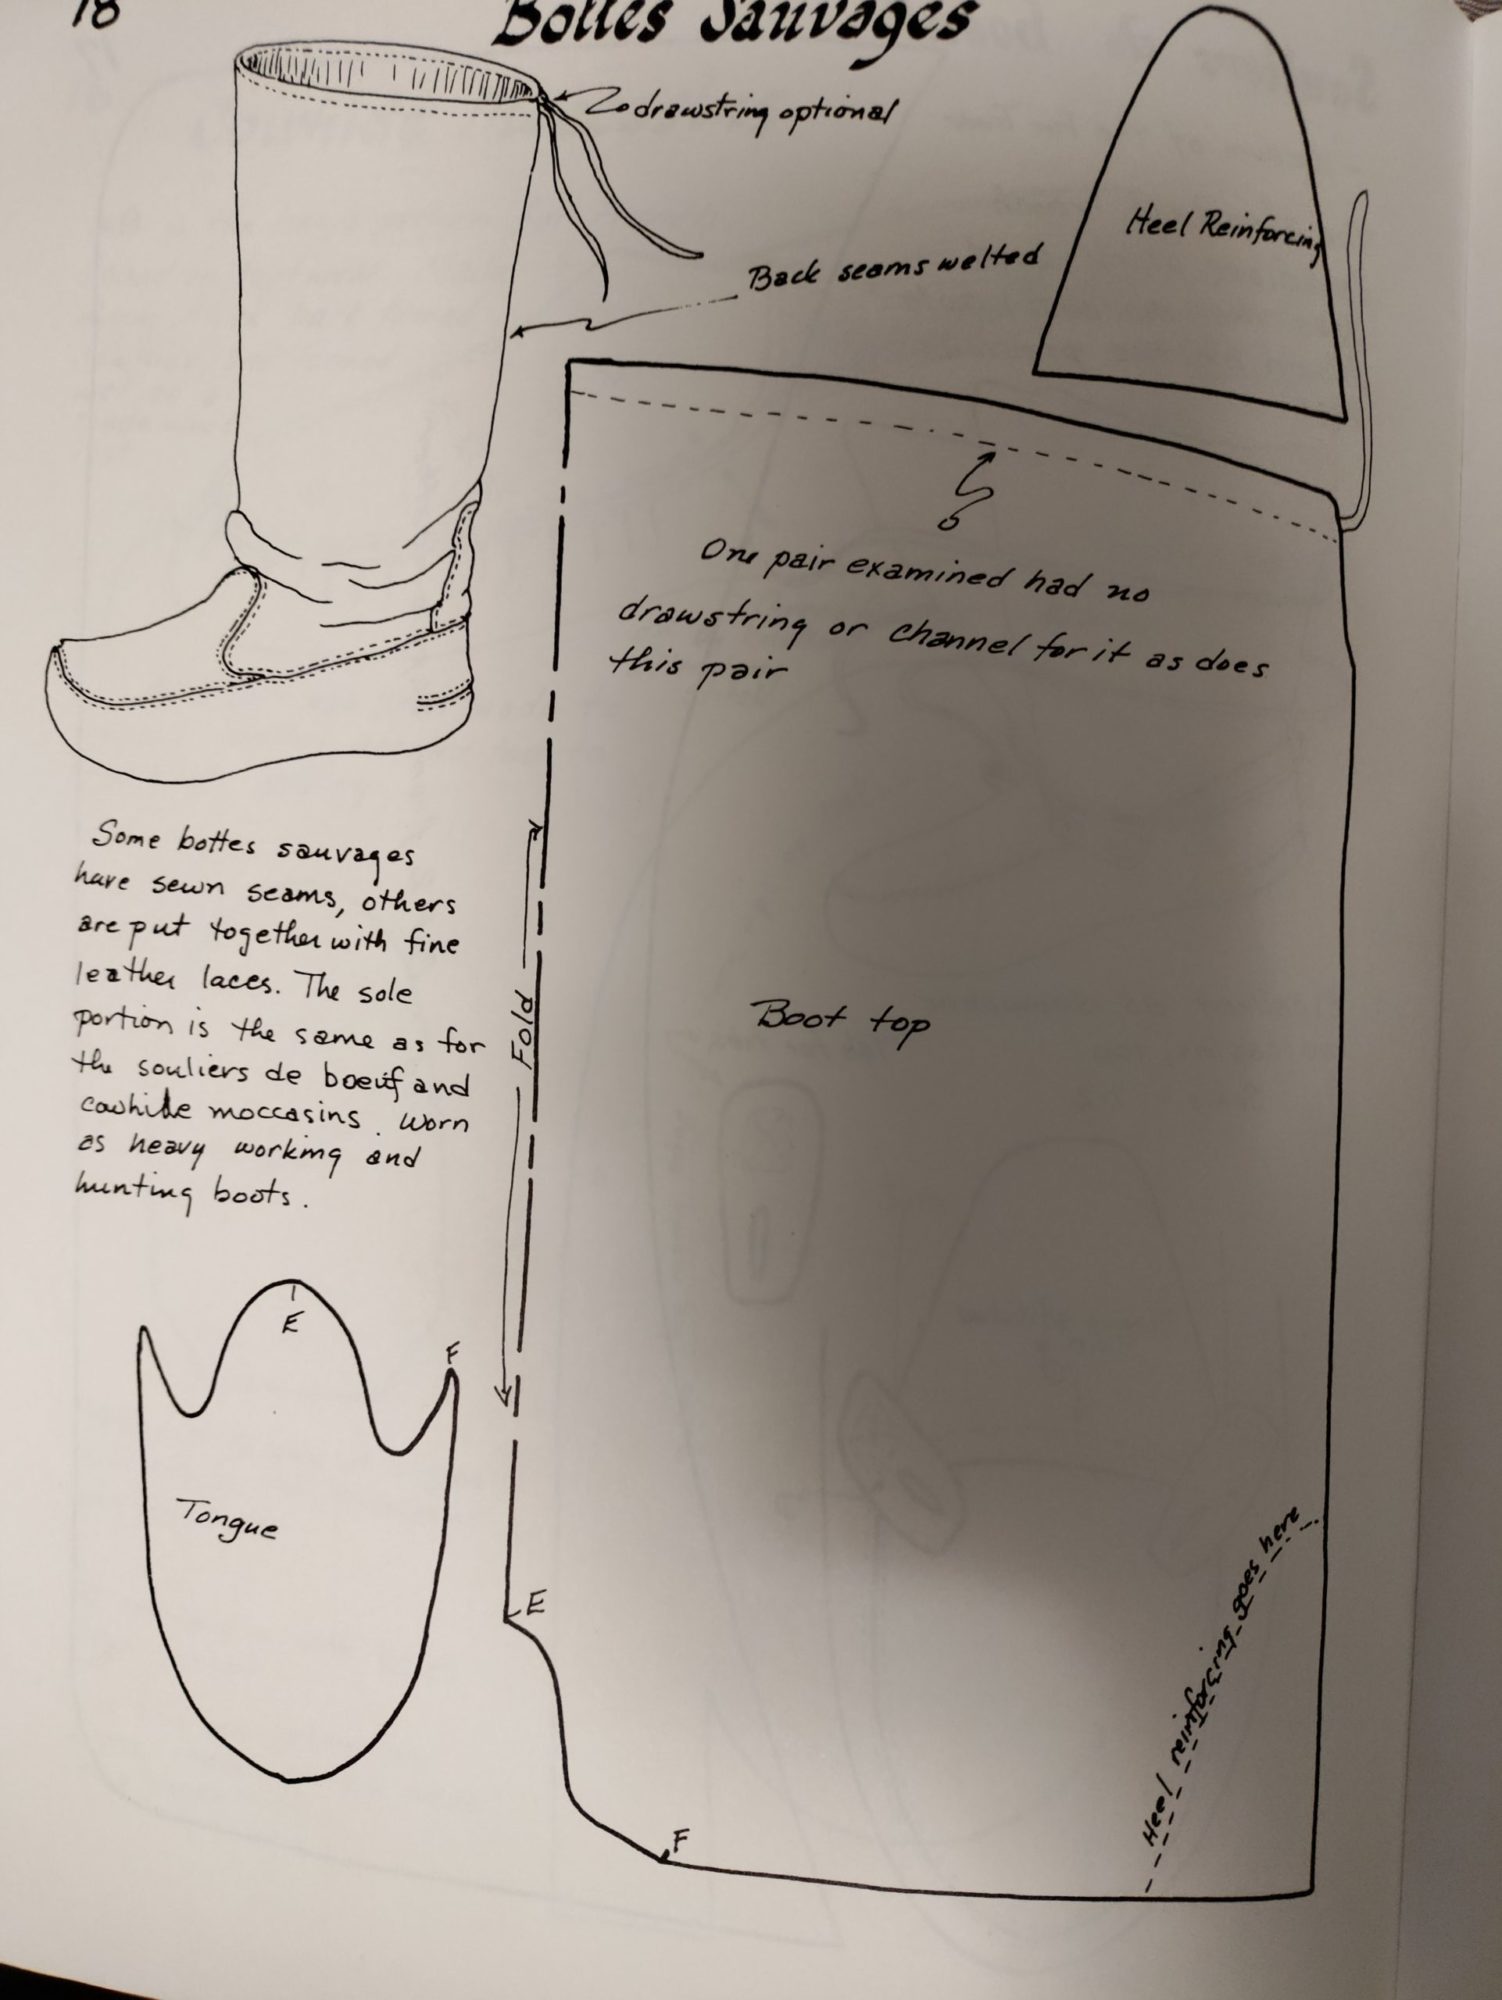 18
Bottes Sauvages
drawstring optional
Back seams welted
Heel Reinforcing
One pair examined had no
drawstring or channel for it as does
this pair
Some bottes sauvages
have sewn seams, others
are put together with fine
leather laces. The sole
portion is the same as for
the souliers de boeuf and
cowhide moccasins. Worn
as heavy working and
hunting boots.
Fold
Boot top
E
F
Tongue
E
F
Heel reinforcing goes here